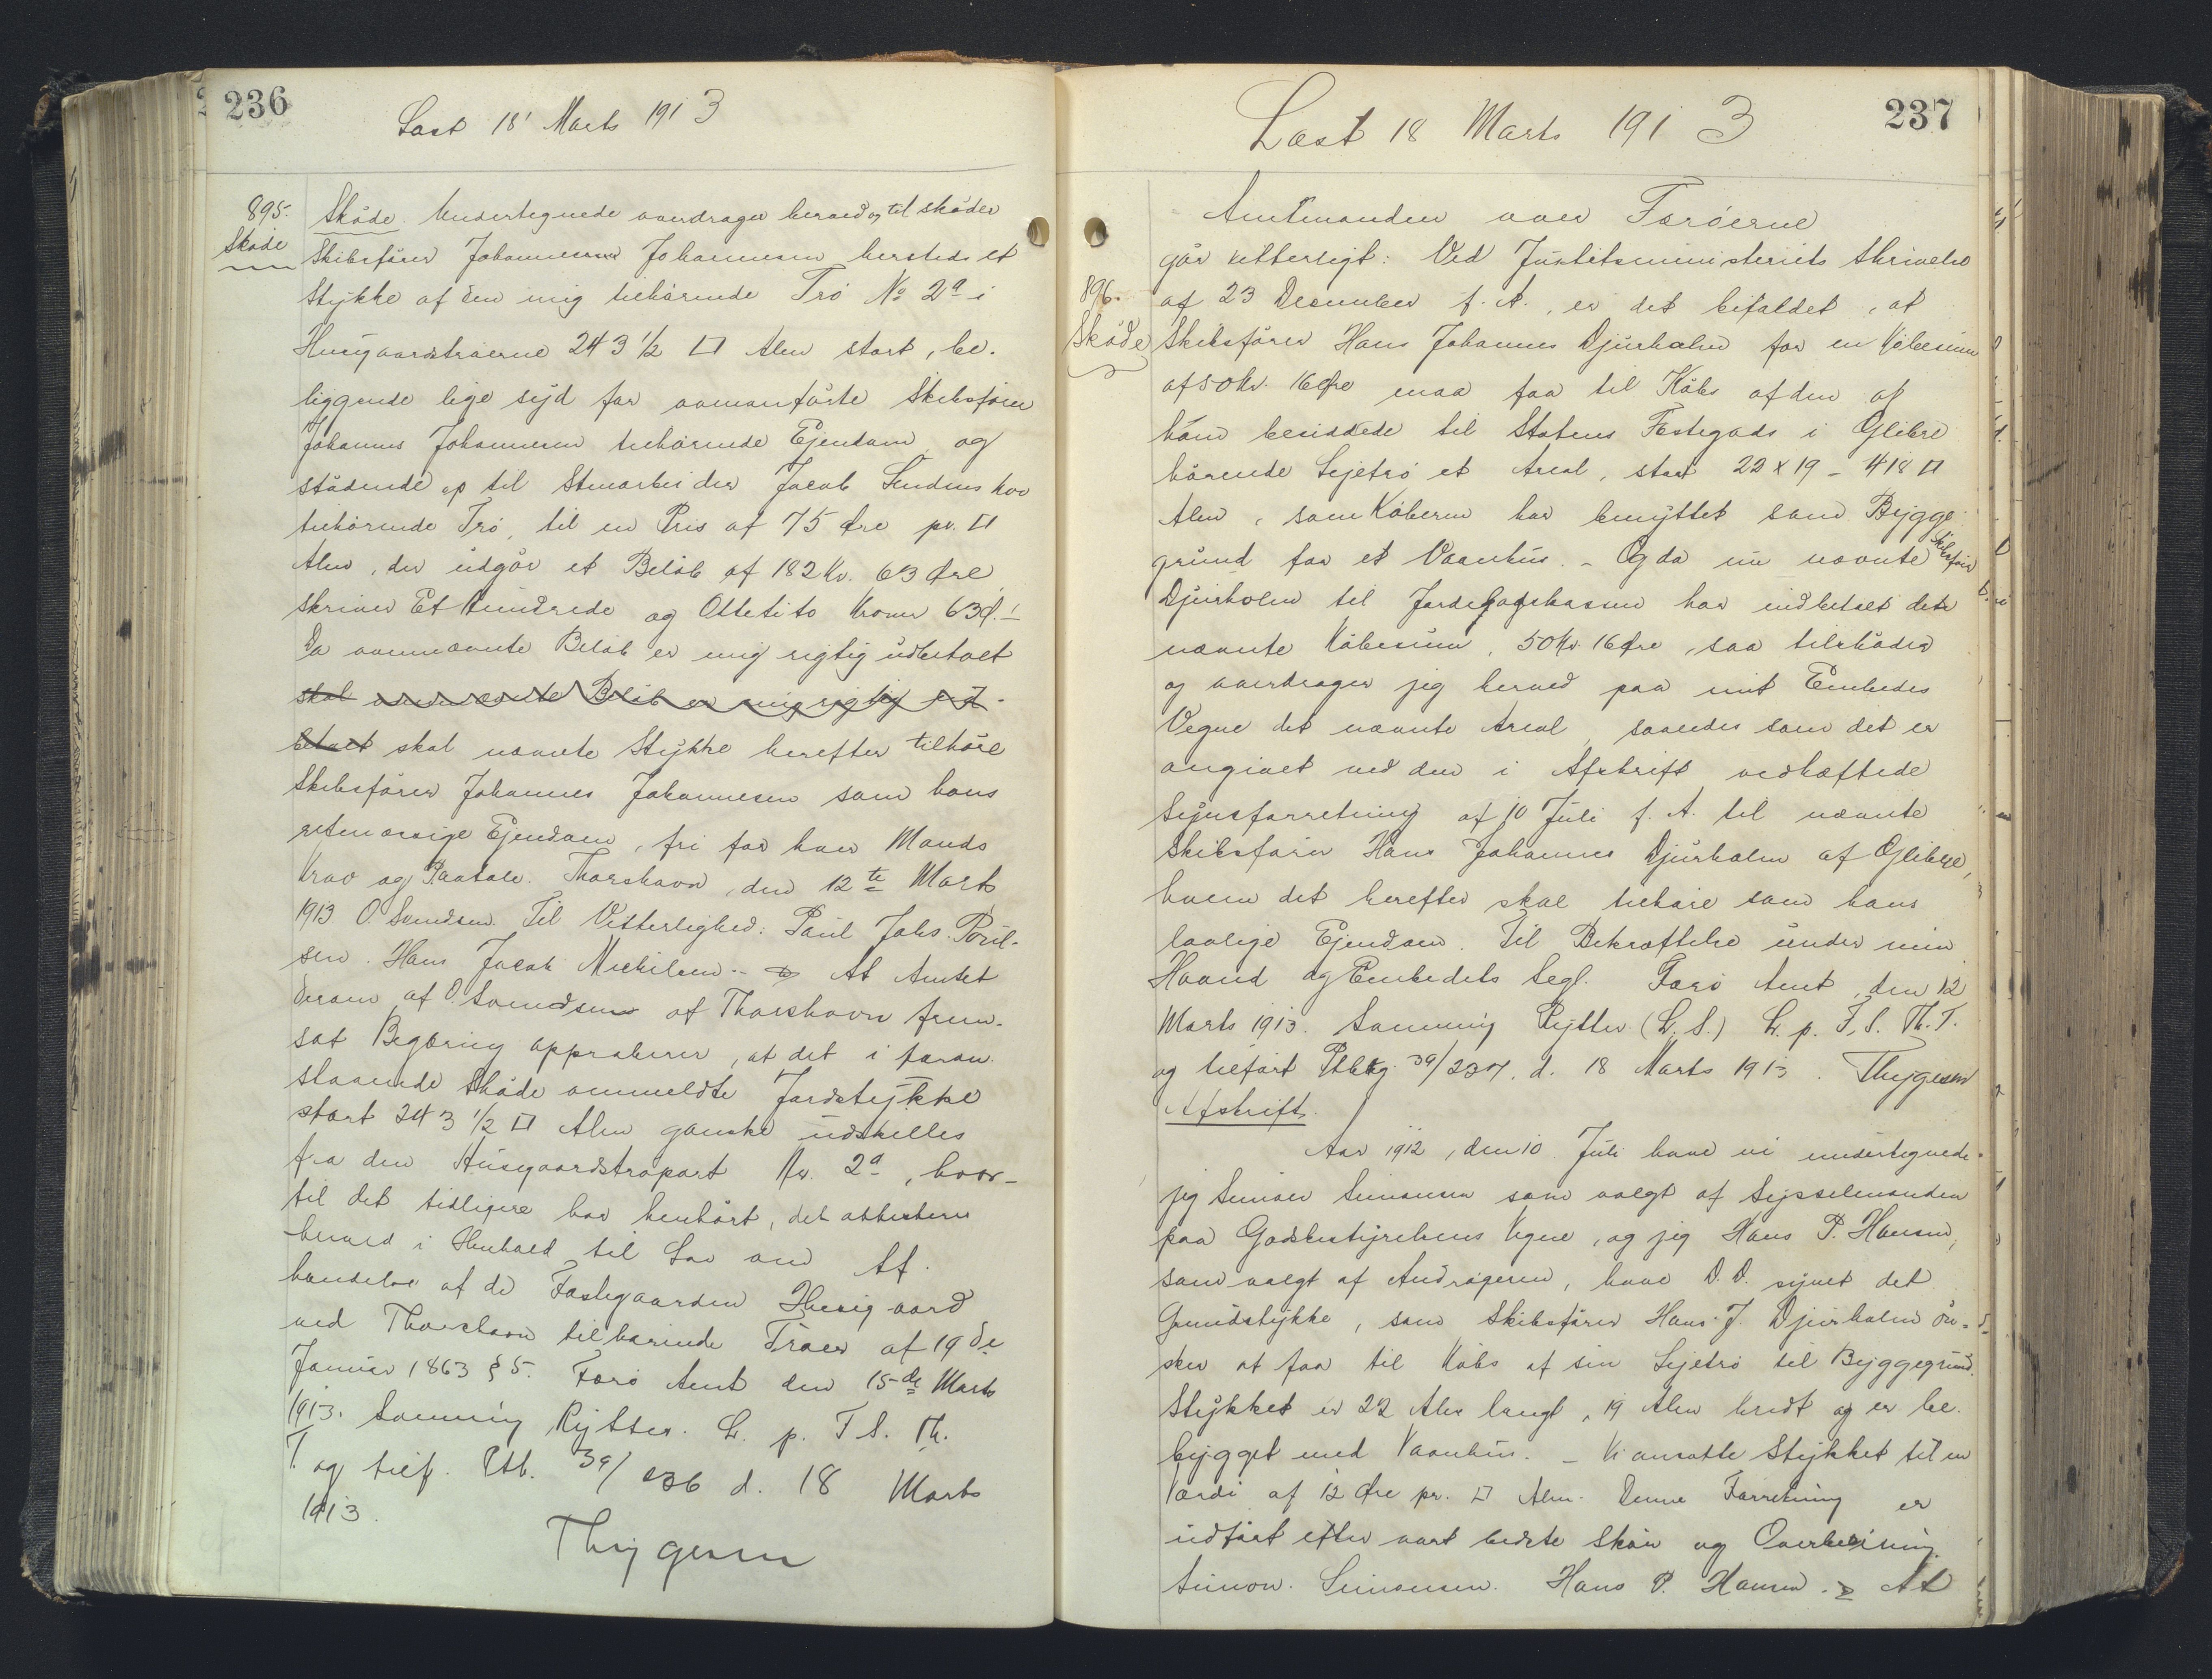 236
Læst 18' Marts 1913
895.
Skøde
Skøde. Undertegnede overdrager herved og til skøder
Skibsfører Johannes Johannesen hersteds et
Stykke af den mig tilhørende Trø No 2a i
Husgaardstrøerne 243 1/2 □ Alen stort, be-
liggende lige syd for ovenanførte Skibsfører
Johannes Johannesen tilhørende Ejendom og
stødende op til Stenarbeider Jacob
tilhørende Trø, til en Pris af 75 Øre pr. □
Alen, der udgør et Beløb af 182 Kr. 63 Øre,
skriver Et Hundrede og Otteti to Kroner 63 Ø. -
Da ovennævnte Beløb er mig rigtig udbetalt
skal ovennævnte Beløb er mig rigtig ud-
betalt skal nævnte Stykke herefter tilhøre
Skibsfører Johannes Johannesen som hans
retmæssige Ejendom, fri for hver Mands
Krav og Paatale. Thorshavn, den 12te Marts
1913 O. Svendsen. Til Vitterlighed: Paul Johs. Poul-
sen. Hans Jacob Mickelsen. - At Amtet
derom af O. Svendsen af Thorshavn frem-
sat Begæring approberer, at det i foran-
staaende Skøde ommeldte Jordstykke
stort 243 1/2 □ Alen ganske udskilles
fra den Husgaardstrøpart Nr. 2a, hvor-
til det tidligere har henhørt, det attesteres
herved i Henhold til Lov om Af-
hændelse af de Fæstegaarden Husigaard
ved Thorshavn tilhørende Trøer af 19de
Januar 1863 § 5. Færø Amt den 15de Marts
1913. Svenning Rytter. L. p. T S. Th.
T. og tilf. Ptb. 3a/236 d. 18 Marts
1913.
Thygesen
237
Læst 18 Marts 1913
896.
Skøde
Amtmanden over Færøerne
gør vitterligt: Ved Justitsministeriets Skrivelse
af 23 December f. A., er det bifaldet, at
Skibsfører Hans Johannes Djurholm for en Købesum
af 50 Kr. 16 Øre maa faa til Købs af den af
ham besiddede til Statens Fæstegods i Glibre
hørende Lejetrø et Areal, stort 22 x 19 - 418 □
Alen, som Køberen har benyttet som Bygge-
grund for et Vaanhus. - Og da nu nævnte Skibsfører
Djurholm til Jordebogskassen har indbetalt den
nævnte Købesum, 50 Kr 16 Øre, saa tilskøder
og overdrager jeg herved paa mit Embedes
Vegne det nævnte Areal, saaledes som det er
angivet ved den i Afskrift vedhæftede
Synsforretning af 10 Juli f. A. til nævnte
Skibsfører Hans Johannes Djurholm af Glibre,
hvem det herefter skal tilhøre som hans
lovlige Ejendom. Til Bekræftelse under min
Haand og Embedets Segl. Færø Amt, den 12
Marts 1913. Svenning Rytter (L. S.) L. p. F. S. Th. T.
og tilført Ptbkg. 3a/237. d. 18 Marts 1913. Thygesen
Afskrift.
Aar 1912, den 10 Juli have vi undertegnede
jeg Simon Simonsen som valgt af Sysselmanden
paa Godsbestyrelsens Vegne, og jeg Hans P. Hansen,
som valgt af Andrageren, have D. D. synet det
Grundstykke, som Skibsfører Hans J. Djurholm øn-
sker at faa til Købs af sin Lejetrø til Byggegrund.
Stykket er 22 Alen langt, 19 Alen bredt og er be-
bygget med Vaanhus. - Vi ansatte Stykket til en
Værdi af 12 Øre pr. □ Alen. Denne Forretning er
udført efter vort bedste Skøn og Overbevisning.
Simon. Simonsen. Hans P. Hansen. - At